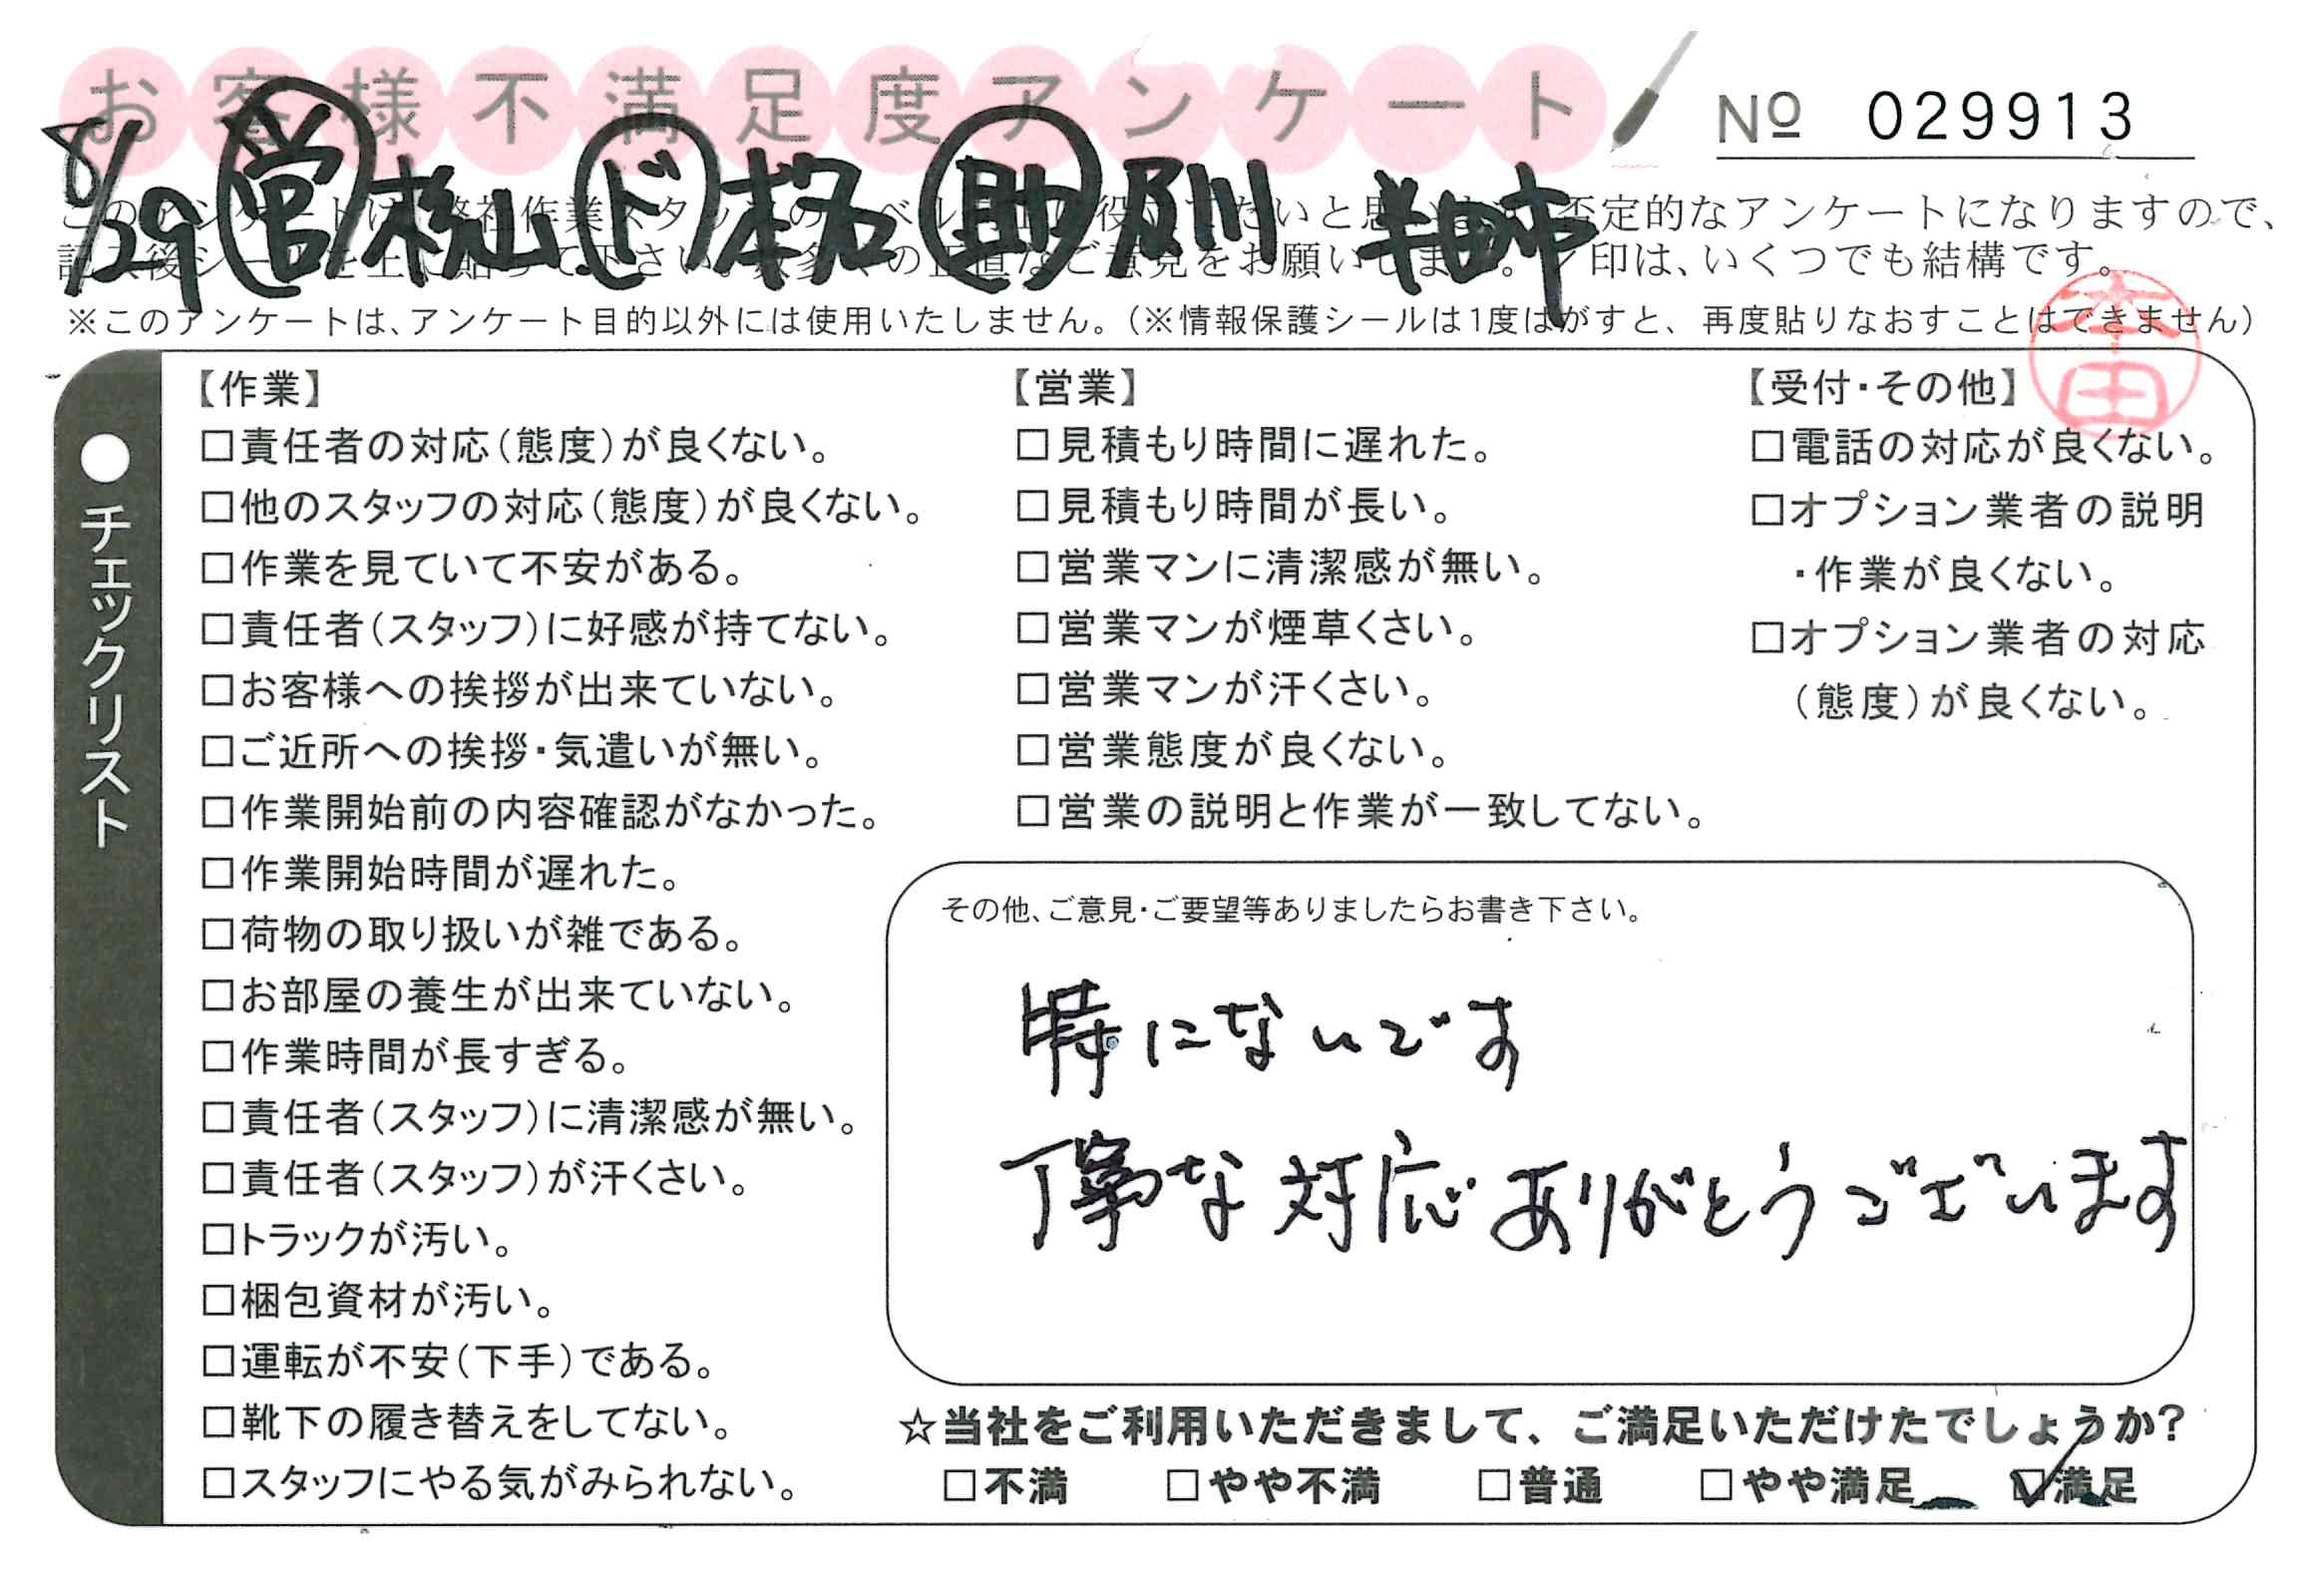 お客様不満足度アンケート
№ 029913
8/29 営 桃山 ド 本名 助 及川 半田市
このアンケートは、弊社作業スタッフのレベル 役 たいと思い 否定的なアンケートになりますので、
記入後シールを上に貼って下さい。 多くの正直なご意見をお願いします。レ印は、いくつでも結構です。
※このアンケートは、アンケート目的以外には使用いたしません。(※情報保護シールは1度はがすと、再度貼りなおすことはできません)
本田
●チェックリスト
【作業】
□責任者の対応(態度)が良くない。
□他のスタッフの対応(態度)が良くない。
□作業を見ていて不安がある。
□責任者(スタッフ)に好感が持てない。
□お客様への挨拶が出来ていない。
□ご近所への挨拶・気遣いが無い。
□作業開始前の内容確認がなかった。
□作業開始時間が遅れた。
□荷物の取り扱いが雑である。
□お部屋の養生が出来ていない。
□作業時間が長すぎる。
□責任者(スタッフ)に清潔感が無い。
□責任者(スタッフ)が汗くさい。
□トラックが汚い。
□梱包資材が汚い。
□運転が不安(下手)である。
□靴下の履き替えをしてない。
□スタッフにやる気がみられない。
【営業】
□見積もり時間に遅れた。
□見積もり時間が長い。
□営業マンに清潔感が無い。
□営業マンが煙草くさい。
□営業マンが汗くさい。
□営業態度が良くない。
□営業の説明と作業が一致してない。
【受付・その他】
□電話の対応が良くない。
□オプション業者の説明
・作業が良くない。
□オプション業者の対応
(態度)が良くない。
その他、ご意見・ご要望等ありましたらお書き下さい。
特にないです
丁寧な対応ありがとうございます
☆当社をご利用いただきまして、ご満足いただけたでしょうか?
□不満 □やや不満 □普通 □やや満足 ☑満足